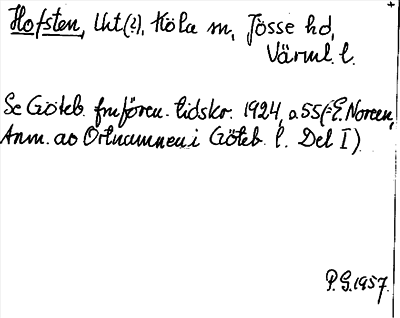 Hofsten, Ukt.(?), Köla sn, Jösse hd,
Värml. l.
Se Göteb. fmfören. tidskr. 1924, s. 55 (=E. Noreen,
Anm. av Ortnamnen i Göteb. l. Del I)
P. G. 1957.